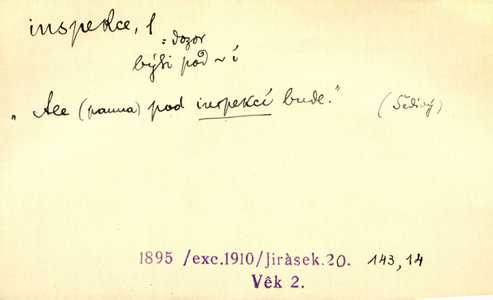 inspekce, f
= dozor
býti pod ~ í
„Ale (panna) pod inspekcí bude." (Šedivý)
1895 /exc.1910/Jiràsek.20. 143,14
Vêk 2.